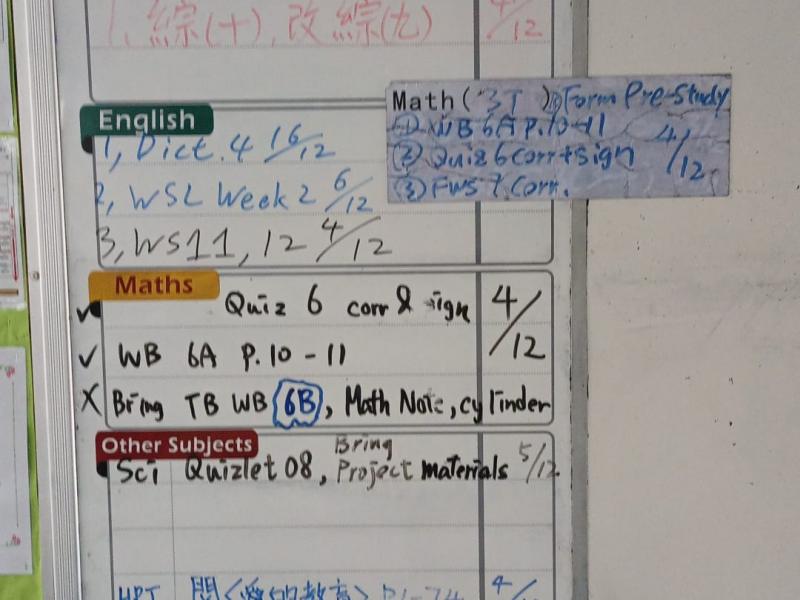 1, 綜(十), 改 綜(九) 4/12
English
1, Dict. 4 16/12
2, WSL Week 2 6/12
3, WS11, 12 4/12
Math( 3T ) Form Pre-Study
① WB 6A P.10-11
② Quiz 6 corr+sign 4/12
③ FWS 7 Corr.
Maths
✓ Quiz 6 corr & sign 4/12
✓ WB 6A P.10-11
X Bring TB WB 6B, Math Note, cylinder
Other Subjects
Sci Quizlet 08, Bring Project materials 5/12
閱《愛的教育》 4/